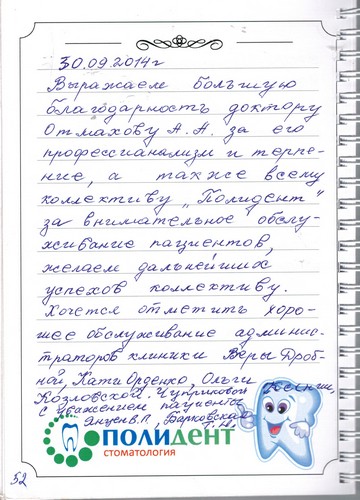 30.09.2014г
Выражаем большую
благодарность доктору
Отмахову А.А. за его
профессианализм и терпе-
ние, а также всему
коллективу „Полидент"
за внимательное обслу-
живание пациентов,
желаем дальнейших
успехов коллективу.
Хочется отметить хоро-
шее обслуживание админис-
траторов клиники Веры Дроб-
ной, Кати Орденко, Ольги
Козловской. Чуприковой Ксении,
с уважением пациенты
Янцен В.П., Барковская
Т.Н.
ПОЛИДЕНТ
СТОМАТОЛОГИЯ
52